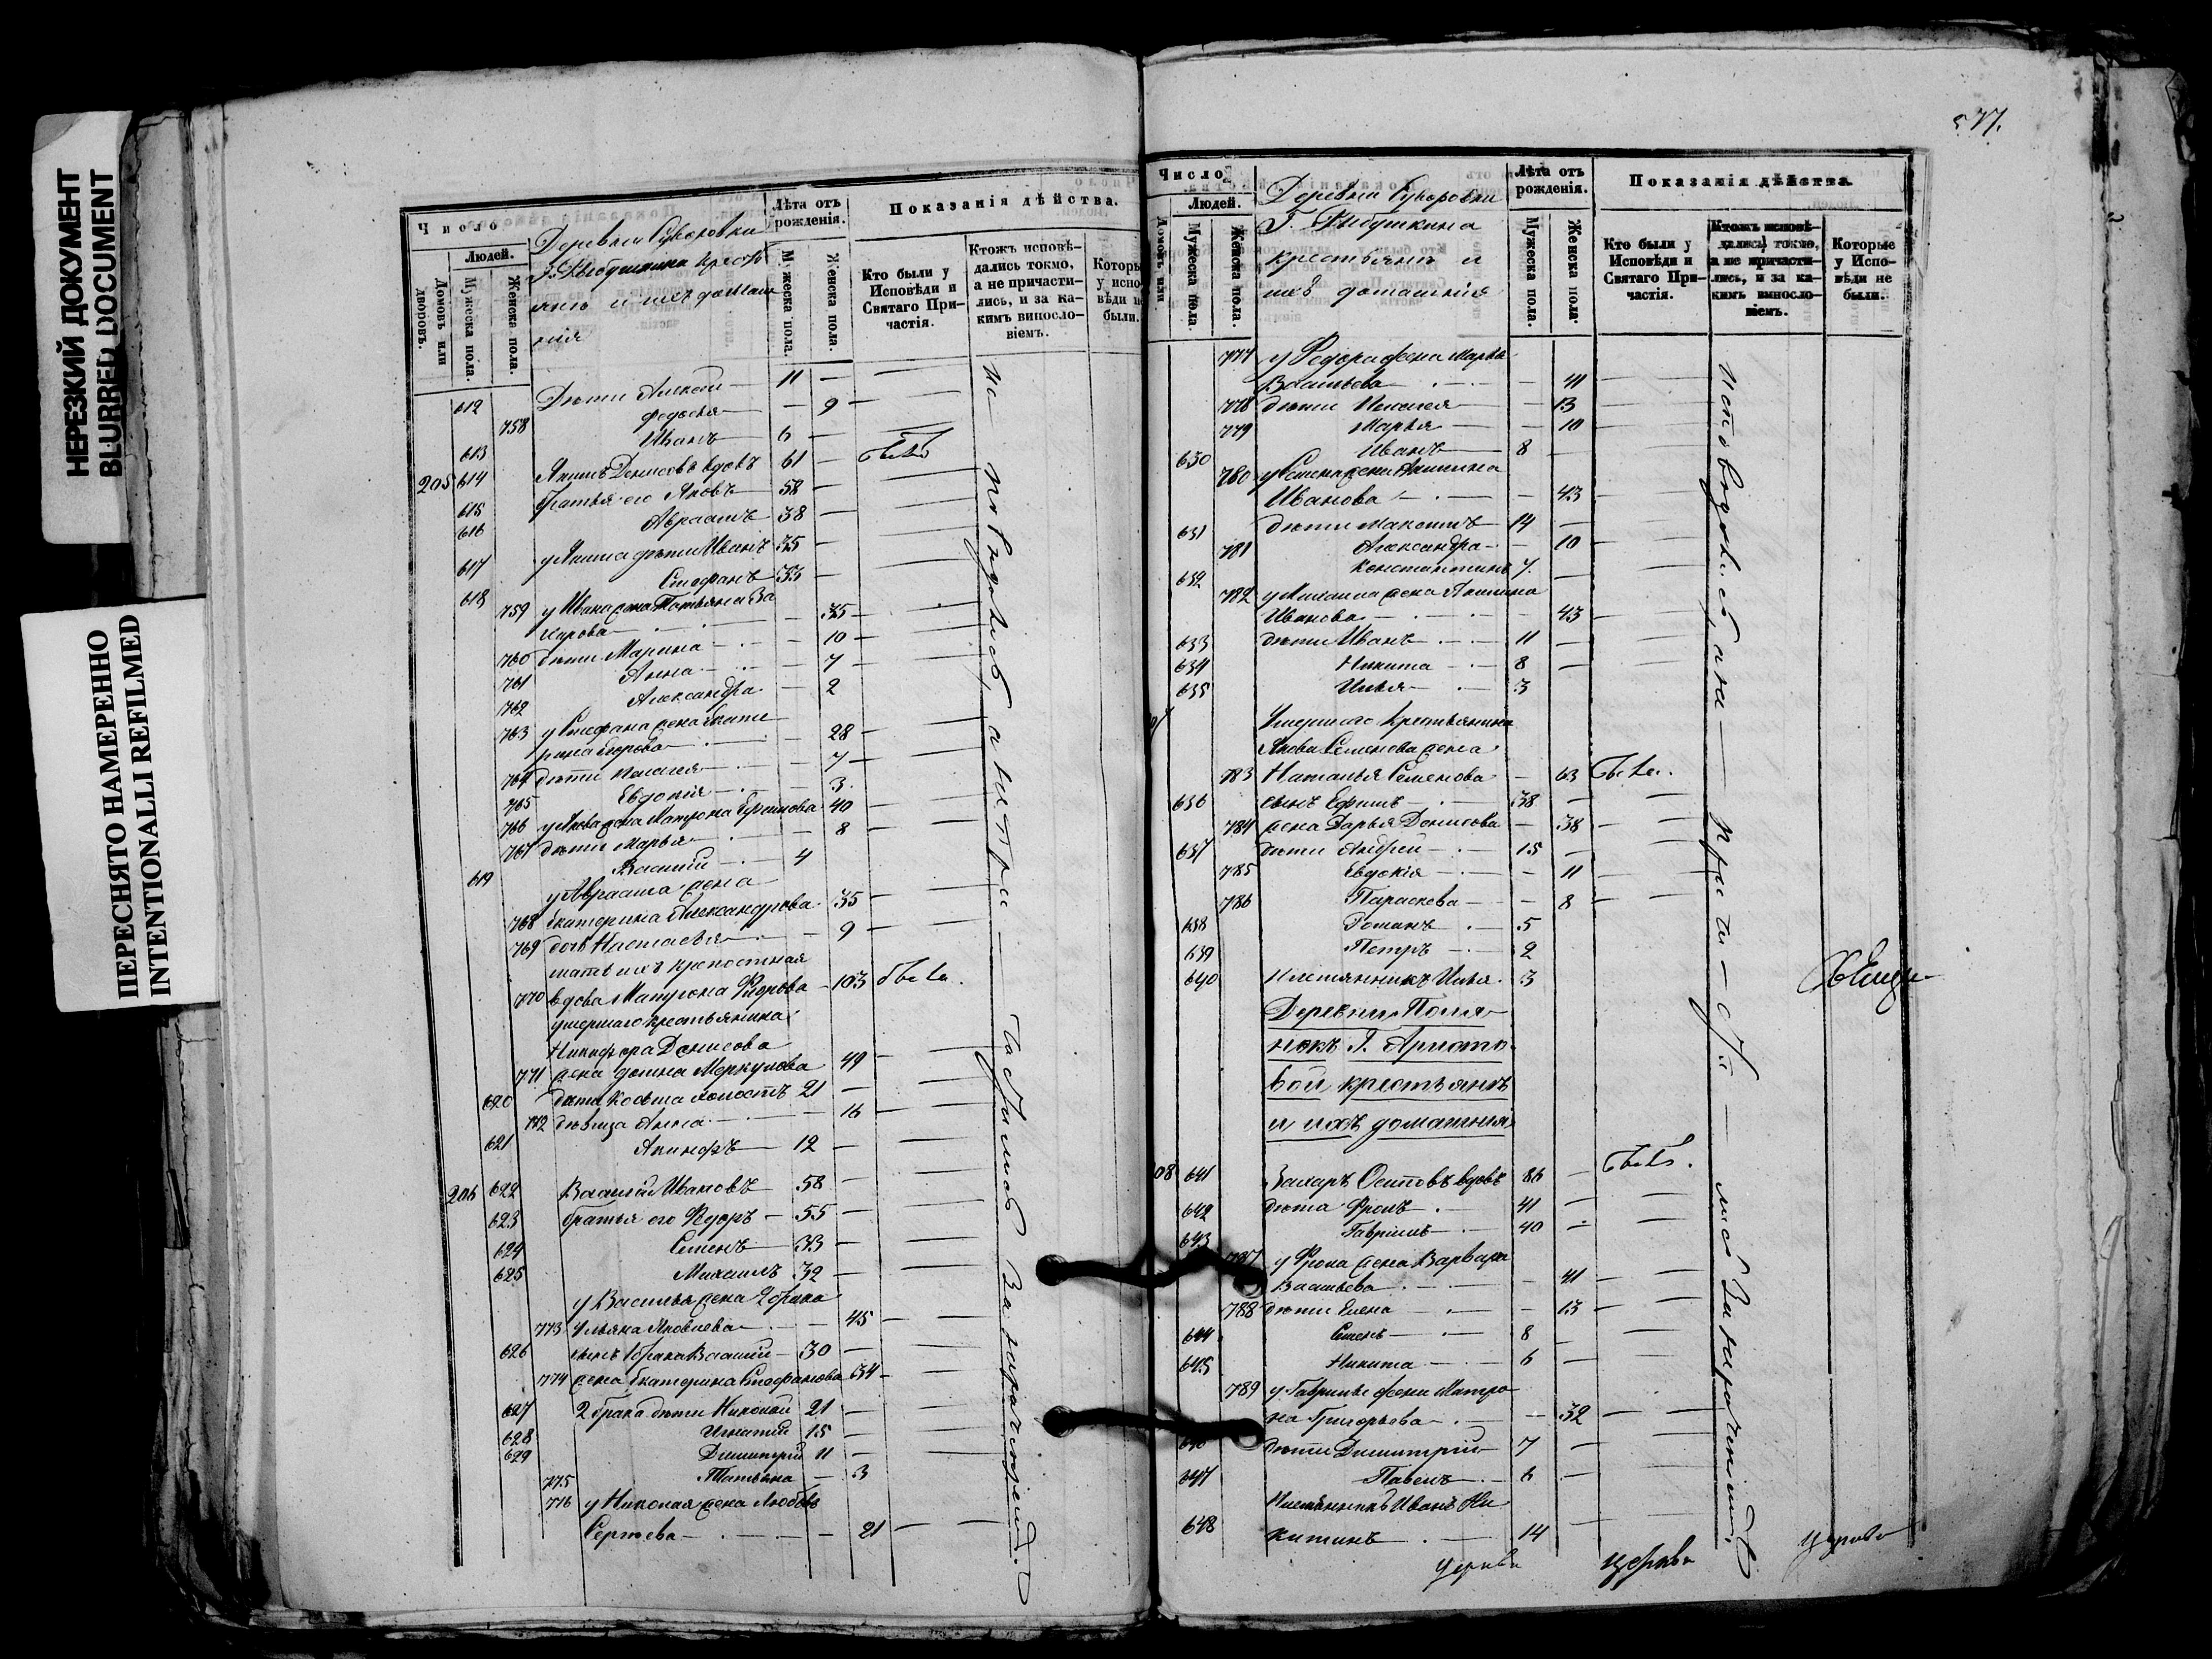 НЕРЕЗКИЙ ДОКУМЕНТ
BLURRED DOCUMENT
ПЕРЕСНЯТО НАМЕРЕННО
INTENTIONALLI REFILMED
Число
Людей.
Домовъ или дворовъ.
Мужеска пола.
Женска пола.
Деревни Суворовки
Лѣта отъ рожденія.
Мужеска пола.
Женска пола.
Показанія дѣйства.
Кто были у Исповѣди и Святаго Причастія.
Ктожъ исповѣдались токмо, а не причастились, и за какимъ винословіемъ.
612 Дѣти Алексѣй 11
758 Федосья 9
613 Иванъ 6
205 614 Якимъ Денисовъ вдовъ 61
615 Братья его Яковъ 58
616 Авраамъ 38
617 у Якима дѣти Иванъ 35
618 Стефанъ 33
759 у Ивана жена Татьяна Захарова 35
760 дѣти Марина 10
761 Анна 7
762 Александра 2
763 у Стефана жена Екатерина Егорова 28
764 дѣти Пелагея 7
765 Евдокія 3
766 у Якова жена Матрона Ефимова 40
767 дѣти Марья 8
619 Василій 4
у Авраама жена
768 Екатерина Александрова 35
769 дочь Настасья 9
мать ихъ крепостная
770 вдова Матрона Федорова 103 была.
умершаго крестьянина
Никифора Денисова
771 жена Домна Меркулова 49
620 дѣти Косьма холостъ 21
772 дѣвица Анна 16
621 Акинфъ 12
206 622 Василій Ивановъ 58
623 братья его Федоръ 55
624 Семенъ 33
625 Михаилъ 32
у Василья жена 2 брака
773 Ульяна Яковлева 45
626 сынъ 1 брака Василій 30
774 жена Екатерина Стефанова 34
627 2 брака дѣти Николай 21
628 Игнатий 15
629 Димитрій 11
775 Татьяна 3
776 у Николая жена Любовь
Сергѣева 21
577.
Число
Людей.
Мужеска пола.
Женска пола.
Деревни Суворовки
крестьянъ и
ихъ домашнія
Лѣта отъ рожденія.
Мужеска пола.
Женска пола.
Показанія дѣйства.
Кто были у Исповѣди и Святаго Причастія.
Ктожъ исповѣдались токмо, а не причастились, и за какимъ винословіемъ.
Которые у Исповѣди не были.
777 у Федора жена Марья
Васильева 41
778 дѣти Пелагея 13
779 Марья 10
630 Иванъ 8
780 у Семена жена Акилина
Иванова 43
631 дѣти Максимъ 14
781 Александра 10
632 Константинъ 7.
782 у Михаила жена Акилина
Иванова 43
633 дѣти Иванъ 11
634 Никита 8
635 Илья 3
Умершаго крестьянина
Якова Семенова жена
783 Наталья Семенова 63 была.
636 сынъ Ефимъ 38
784 жена Дарья Денисова 38
637 дѣти Андрей 15
785 Евдокія 11
786 Параскева 8
638 Романъ 5
639 Петръ 2
640 племянникъ Илья 3
Деревни Поля-
нокъ
крестьянъ
и ихъ домашнія
08 641 Захаръ Осиповъ вдовъ 86 былъ.
642 дѣти Фролъ 41
643 Гавріилъ 40
787 у Фрола жена Варвара
Васильева 41
788 дѣти Елена 13
644 Семенъ 8
645 Никита 6
789 у Гавріила жена Матро-
на Григорьева 32
дѣти Димитрій 7
647 Павелъ 6
племянникъ Иванъ Ни-
648 китинъ 14
церкви
церкви